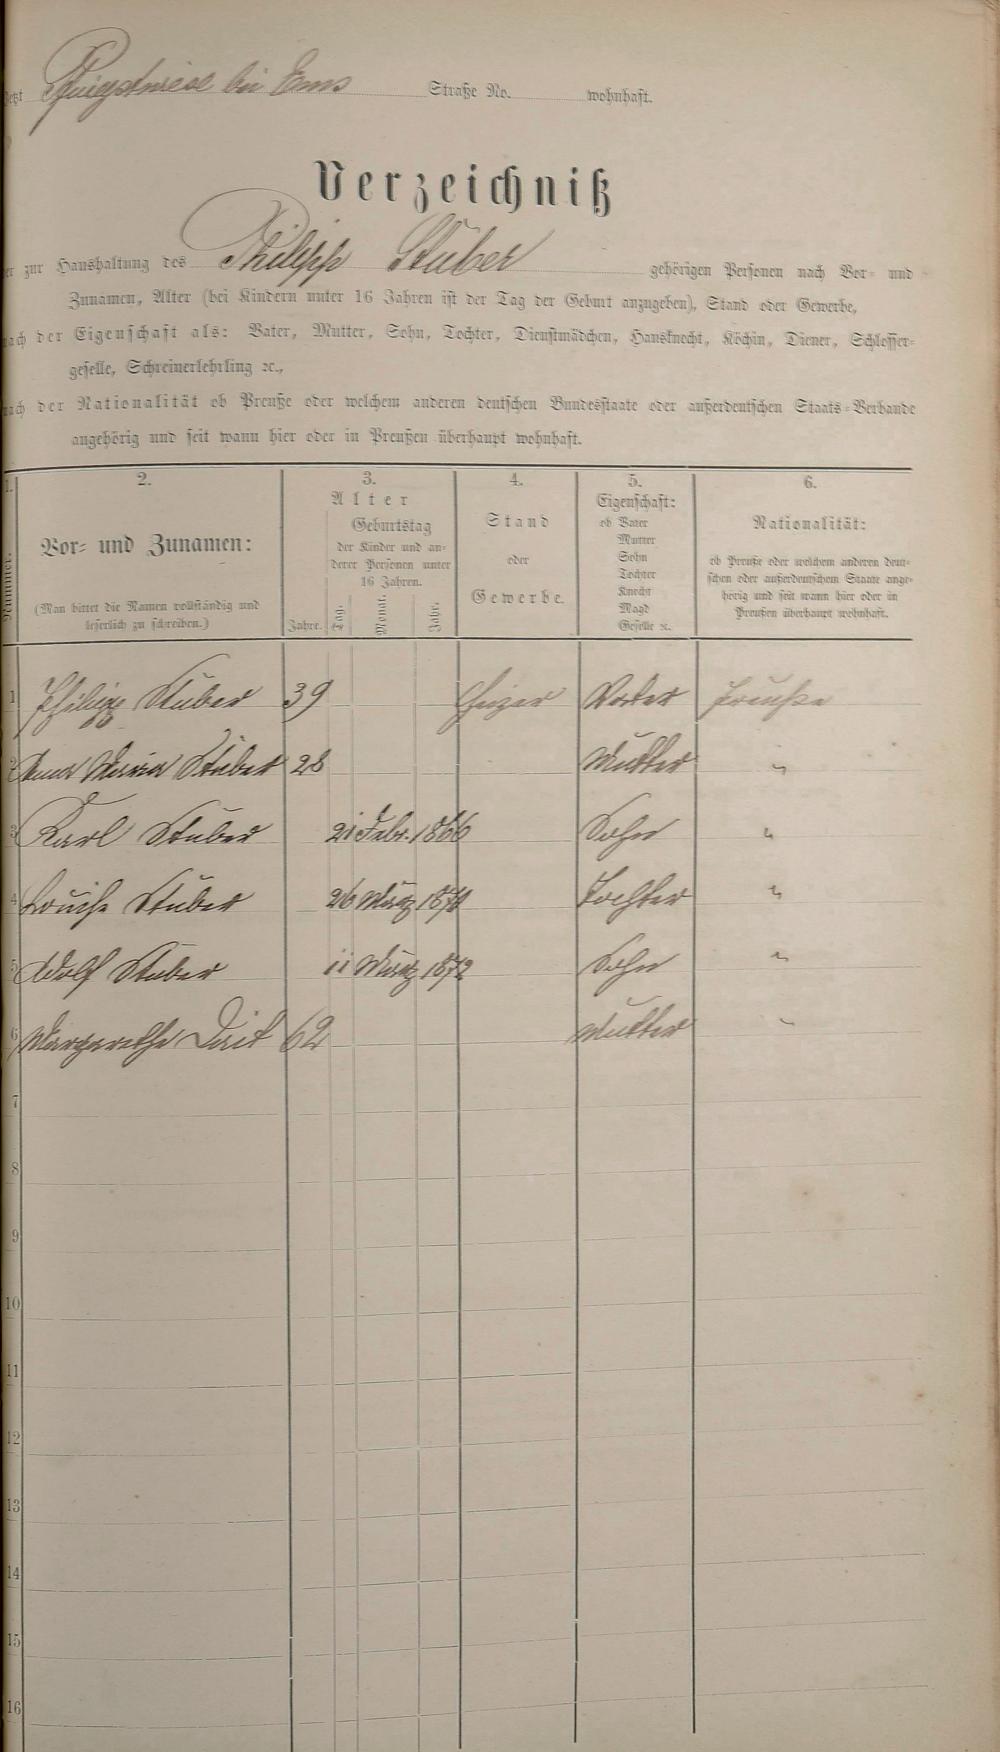 Jetzt Pfingstwiese bei Ems Straße No. wohnhaft.
Verzeichniß
der zur Haushaltung des Philipp Stüber gehörigen Personen nach Vor- und
Zunamen, Alter (bei Kindern unter 16 Jahren ist der Tag der Geburt anzugeben), Stand oder Gewerbe,
nach der Eigenschaft als: Vater, Mutter, Sohn, Tochter, Dienstmädchen, Hausknecht, Köchin, Diener, Schlosser-
geselle, Schreinerlehrling ꝛc.,
nach der Nationalität ob Preuße oder welchem anderen deutschen Bundesstaate oder außerdeutschen Staats-Verbande
angehörig und seit wann hier oder in Preußen überhaupt wohnhaft.
1. 2. 3. 4. 5. 6.
Nummer.
Vor- und Zunamen:
(Man bittet die Namen vollständig und
leserlich zu schreiben.)
Alter
Geburtstag
der Kinder und an-
derer Personen unter
16 Jahren.
Jahre. Tag. Monat. Jahr.
Stand
oder
Gewerbe.
Eigenschaft:
ob Vater
Mutter
Sohn
Tochter
Knecht
Magd
Geselle ꝛc.
Nationalität:
ob Preuße oder welchem anderen deut-
schen oder außerdeutschem Staate ange-
hörig und seit wann hier oder in
Preußen überhaupt wohnhaft.
1 Philipp Stüber 39 Heizer Vater Preuße
2 Anna Maria Stüber 28 Mutter "
3 Karl Stüber 21 Febr. 1866 Sohn "
4 Louise Stüber 26 März 1870 Tochter "
5 Adolf Stüber 11 März 1872 Sohn "
6 Margarethe 62 Mutter "
7
8
9
10
11
12
13
14
15
16